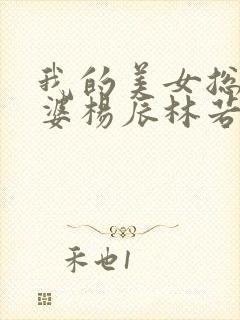 我的美女总
婆杨辰林若
禾也1